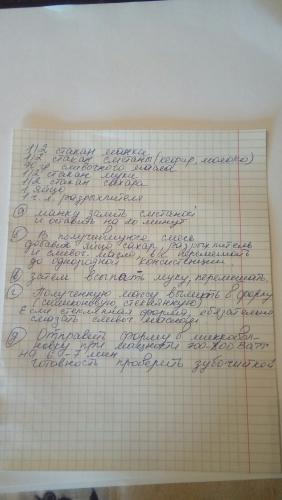 1/2 стакан манки
1/2 стакан сметаны (кефир, молоко)
90 гр сливочного масла
1/2 стакан муки
1/2 стакан сахара
1 яйцо
1 ч. л. разрыхлителя
манку залить сметаной
и оставить на 20 минут
В получившуюся смесь
добавить яйцо, сахар, разрыхлитель
и сливоч. масло, всё перемешать
до однородной консистенции
затем всыпать муку, перемешать,
Полученную массу вылить в форму
силиконовую, стеклянную
Если стеклянная форма, обязательно
смазать сливоч маслом
Отправить форму в микровол-
новку при мощности 700-800 Ватт
на 6-7 мин
Готовность проверить зубочисткой